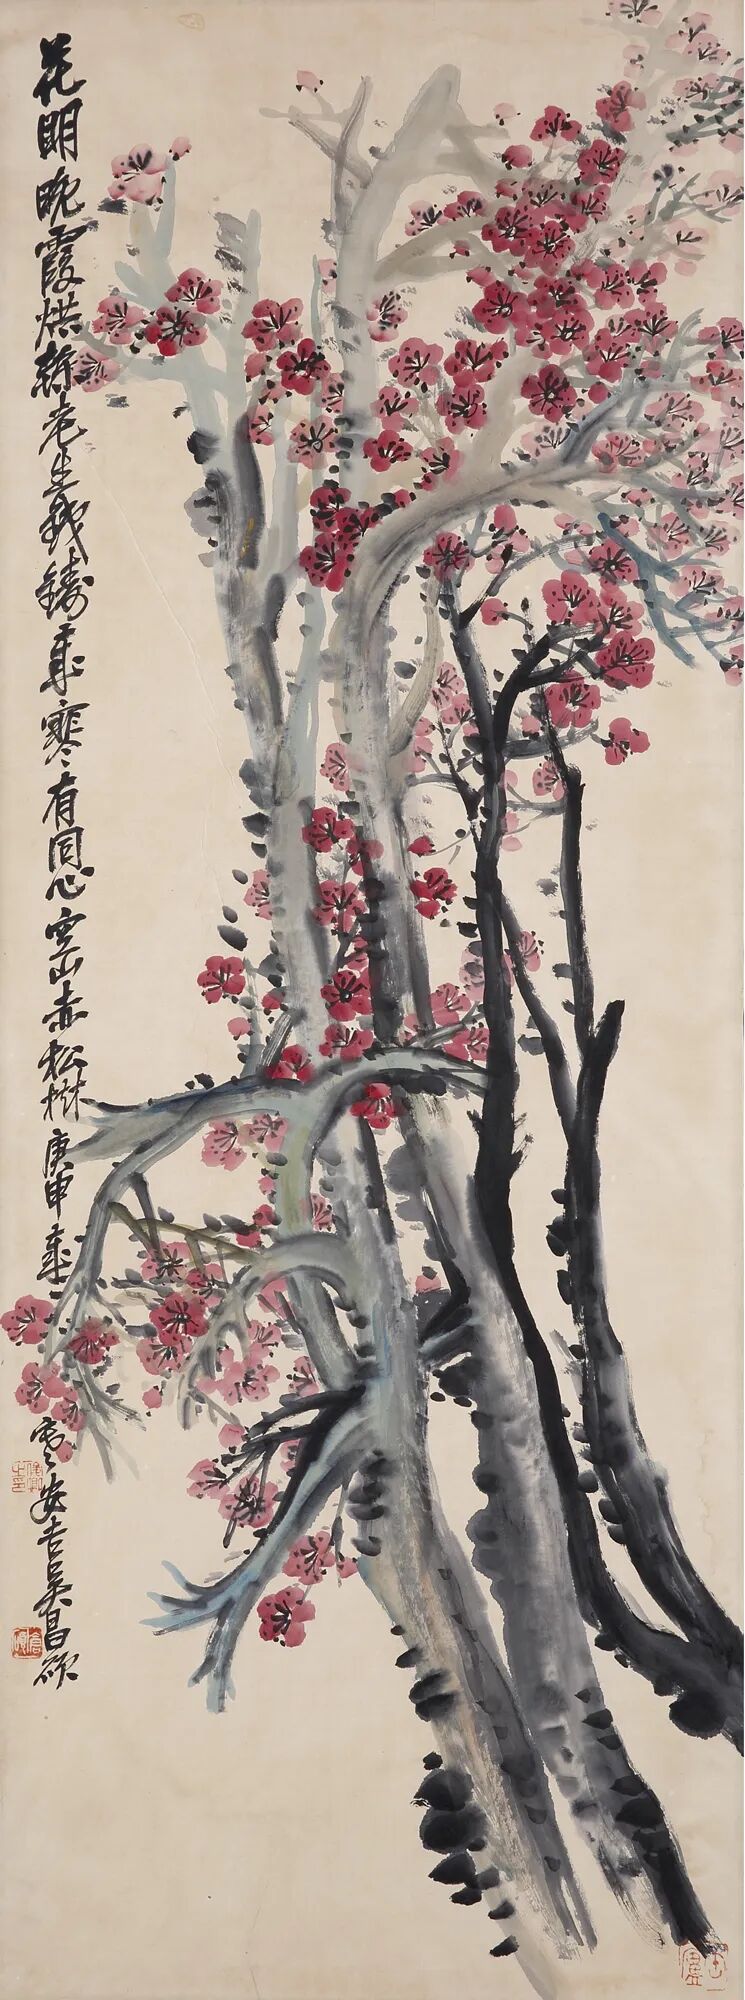 花明晚霞烘幹老生鐵鑄歲寒有同心空山赤松樹庚申歲
寒安吉吳昌碩